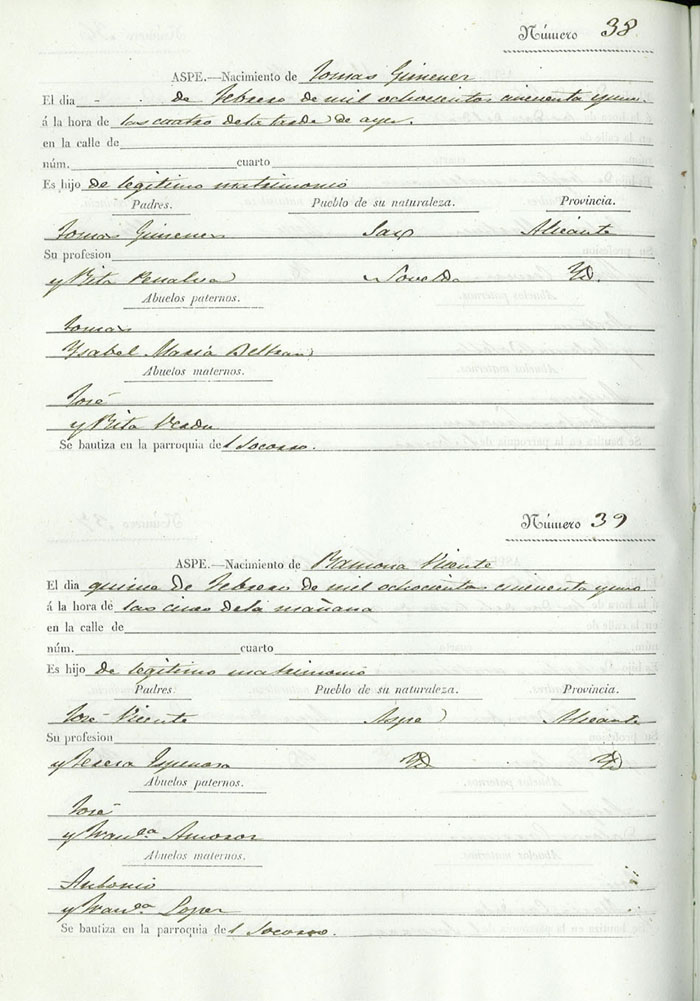 Número 38
ASPE.—Nacimiento de Tomas Gimenez
El dia - . de Febrero de mil ochocientos cincuenta y uno
á la hora de las cuatro de la trade de ayer.
en la calle de
núm. cuarto
Es hijo de legitimo matrimonio
Padres. Pueblo de su naturaleza. Provincia.
Tomas Gimenez Sax Alicante
Su profesion
y Rita Penalva Novelda Yd.
Abuelos paternos.
Tomas
Ysabel Maria Beltran
Abuelos maternos.
José
y Rita Verdu
Se bautiza en la parroquia del Socorro.
Número 39
ASPE.—Nacimiento de Ramona Vicente
El dia quince de Febrero de mil ochocientos cincuenta y uno
á la hora de las cinco de la mañana
en la calle de
núm. cuarto
Es hijo de legitimo matrimonio
Padres. Pueblo de su naturaleza. Provincia.
José Vicente Aspe Alicante
Su profesion
y Teresa Espinosa Yd Yd
Abuelos paternos.
José
y Fran.ca Amoros
Abuelos maternos.
Antonio
y Fran.ca Lopez
Se bautiza en la parroquia del Socorro.